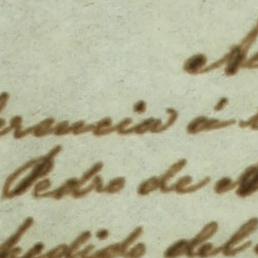 erencia á
Pedro de
pedido del